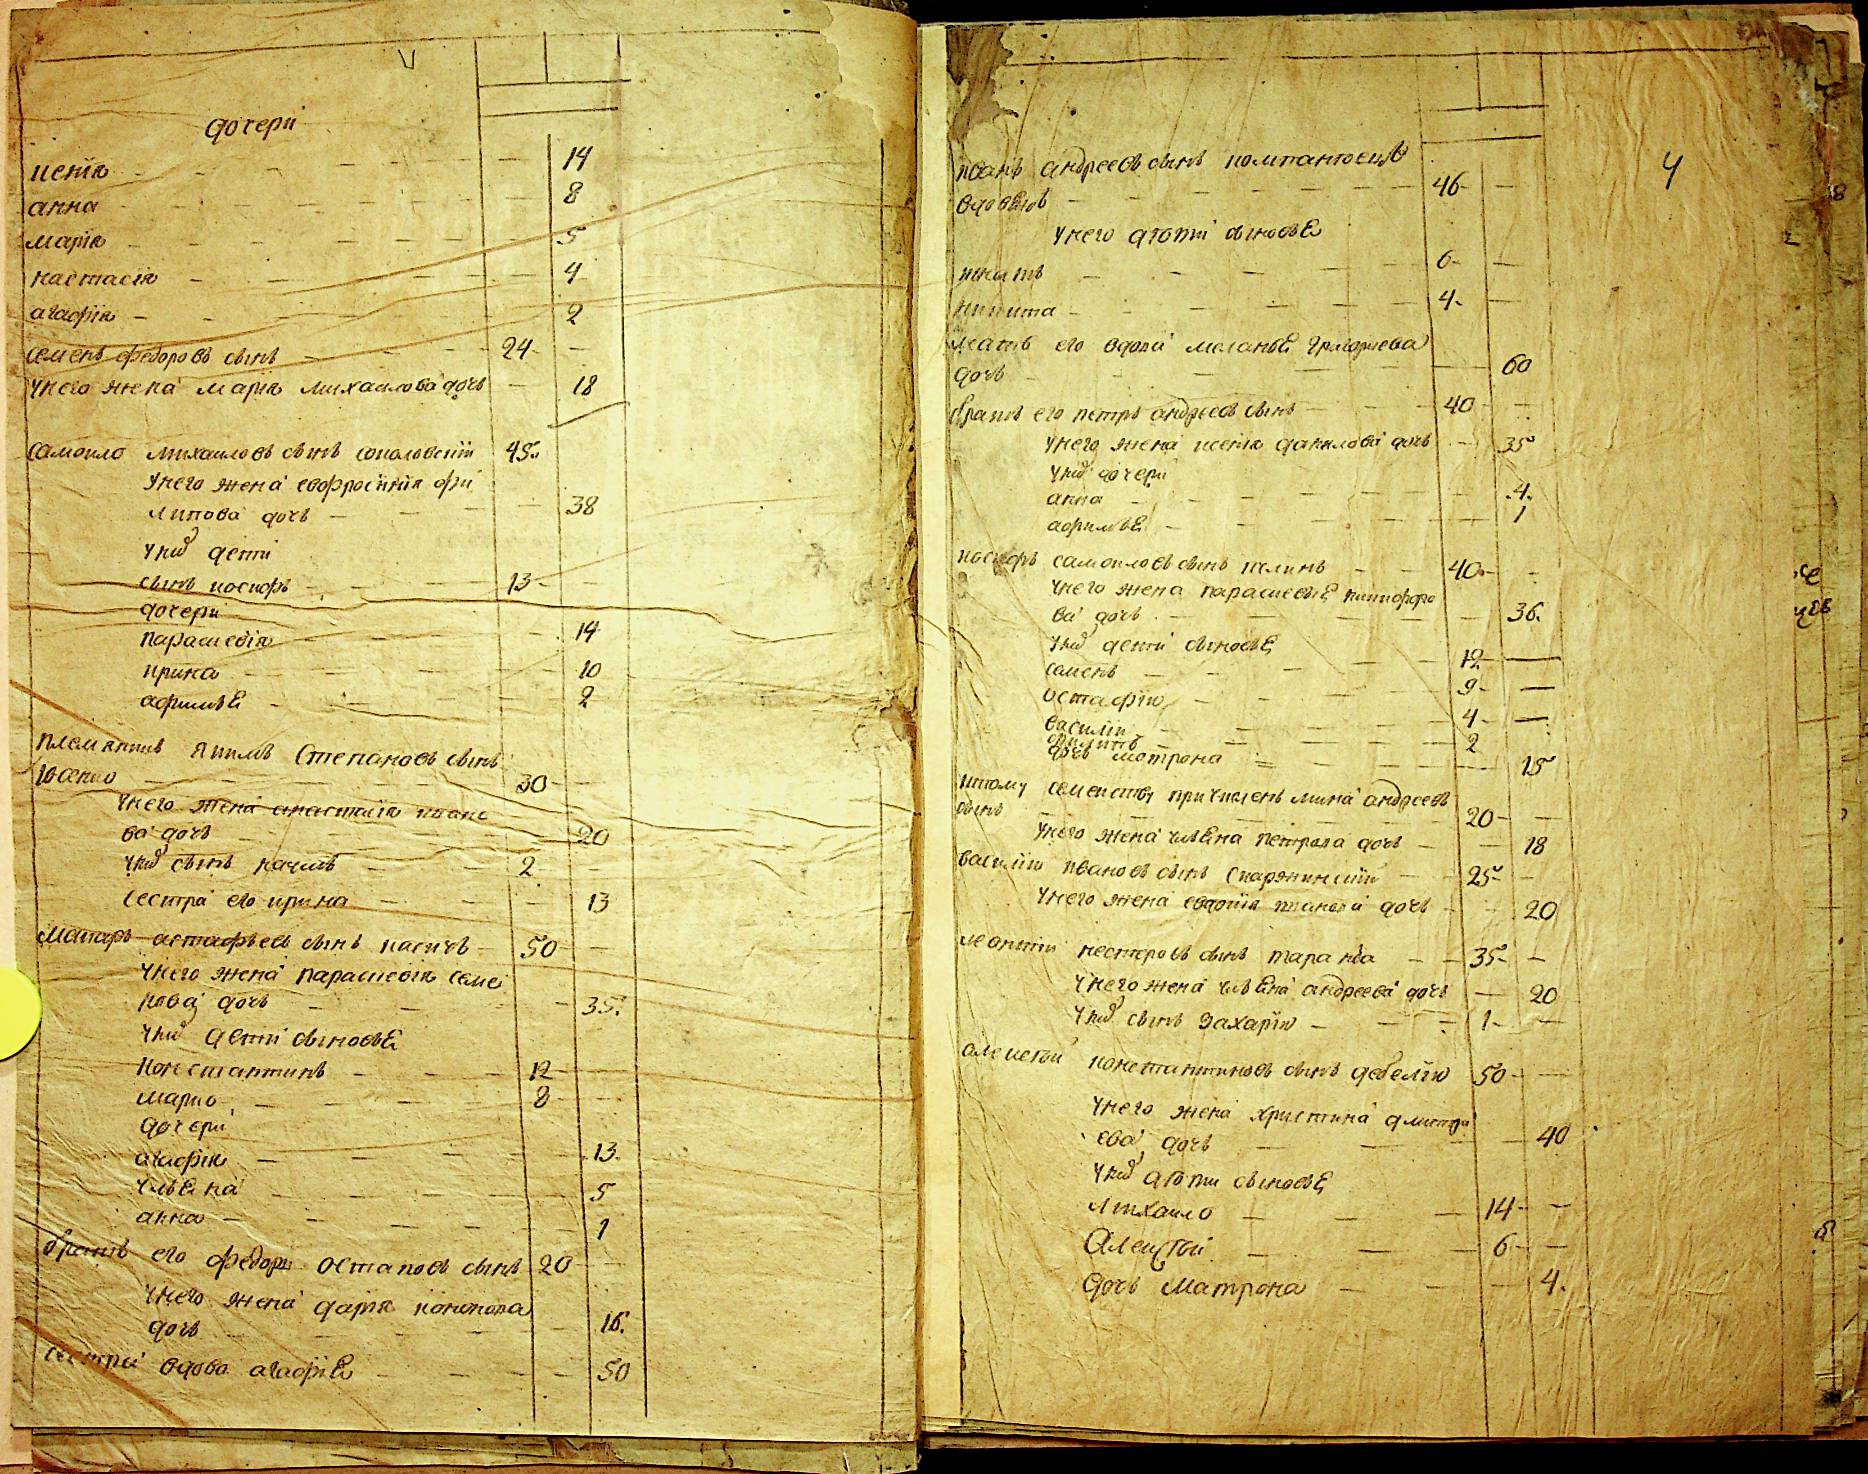 дочери
ксения 14
анна 8
мария 5
настасия 4
агафия 2
семенъ федоровъ сынъ 24
унего жена мария михаилова дочь 18
самоило михаиловъ сынъ соколовский 45
унего жена евфросиния фи
липова дочь 38
унихъ дети
сынъ иосифъ 13
дочери
параскевия 14
ирина 10
афимья 2
племянникъ якимъ степановъ сынъ
30
унего жена анастасия ивано
ва дочь 20
унихъ сынъ наумъ 2
сестра его ирина 13
макаръ астафьевъ сынъ 50
унего жена параскевия семе
нова дочь 35
унихъ дети сыновья
константинъ 12
марко 8
дочери
агафия 13
ульяна 5
анна 1
братъ его федоръ остаповъ сынъ 20
унего жена дария кононова
дочь 16
сестра вдова агафия 50
4
иванъ андреевъ сынъ компанеецъ
вдовецъ 46
унего дети сыновья
игнатъ 6
никита 4
мать его вдова меланья григориева
дочь 60
братъ его петръ андреевъ сынъ 40
унего жена ксения данилова дочь 35
унихъ дочери
анна 4
афимья 1
иосифъ самоиловъ сынъ 40
унего жена параскевья никифоро
ва дочь 36
унихъ дети сыновья
семенъ 12
остафий 9
василий 4
филипъ 2
дочь мотрона 15
ктому семейству причисленъ мина андреевъ
сынъ 20
унего жена ульяна петрова дочь 18
василий ивановъ сынъ скаржинский 25
унего жена евдокия иванова дочь 20
леонтий нестеровъ сынъ таранъ 35
унего жена ульяна андреева дочь 20
унихъ сынъ захария 1
алексей константиновъ сынъ дебелий 50
унего жена христина дмитри
ева дочь 40
унихъ дети сыновья
михаило 14
алексей 6
дочь матрона 4